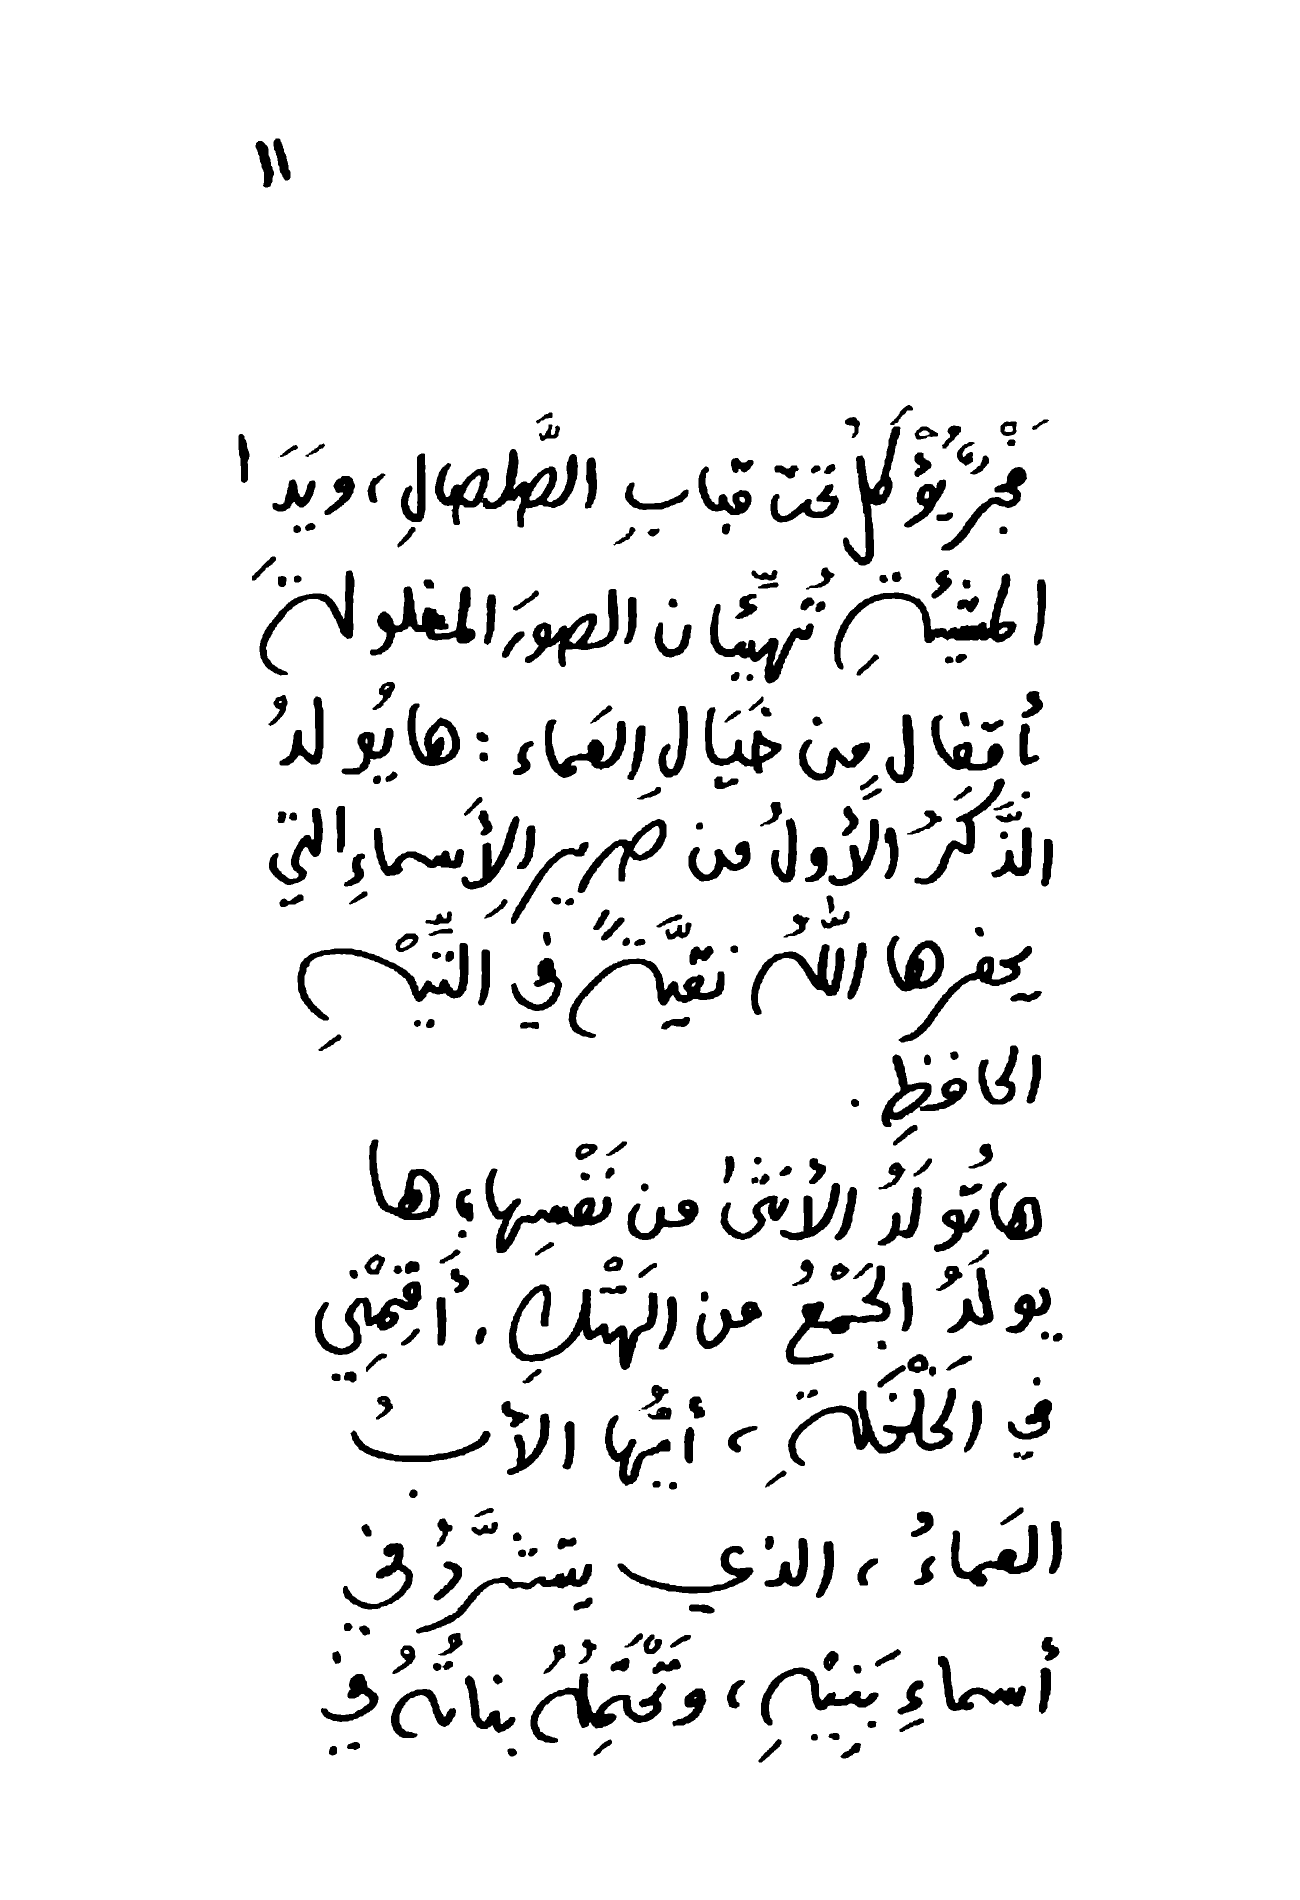 ١١
فَجْرٌ يُؤْكَلُ تحت قبابِ الصَّلصالِ، ويَدَا
المشيئةِ تُهيِّئان الصورَ المغلولةَ
بأقفال من خَيَالِ العَماء : ها يُولدُ
الذَّكَرُ الأولُ من صَريرِ الأسماءِ التي
يحفرها اللهُ نقيَّةً في التِّيْهِ
الحافظِ .
ها تُولَدُ الأنثىٰ من نَفْسِها؛ ها
يولَدُ الجَمْعُ من الهَتْكِ . أَقِمْني
في الخَلْخَلةِ ، أيُّها الأبُ
العَماءُ ، الذي يتشرَّدُ في
أسماءِ بَنِيْهِ ، وتَحْتَمِلُهُ بناتُهُ في